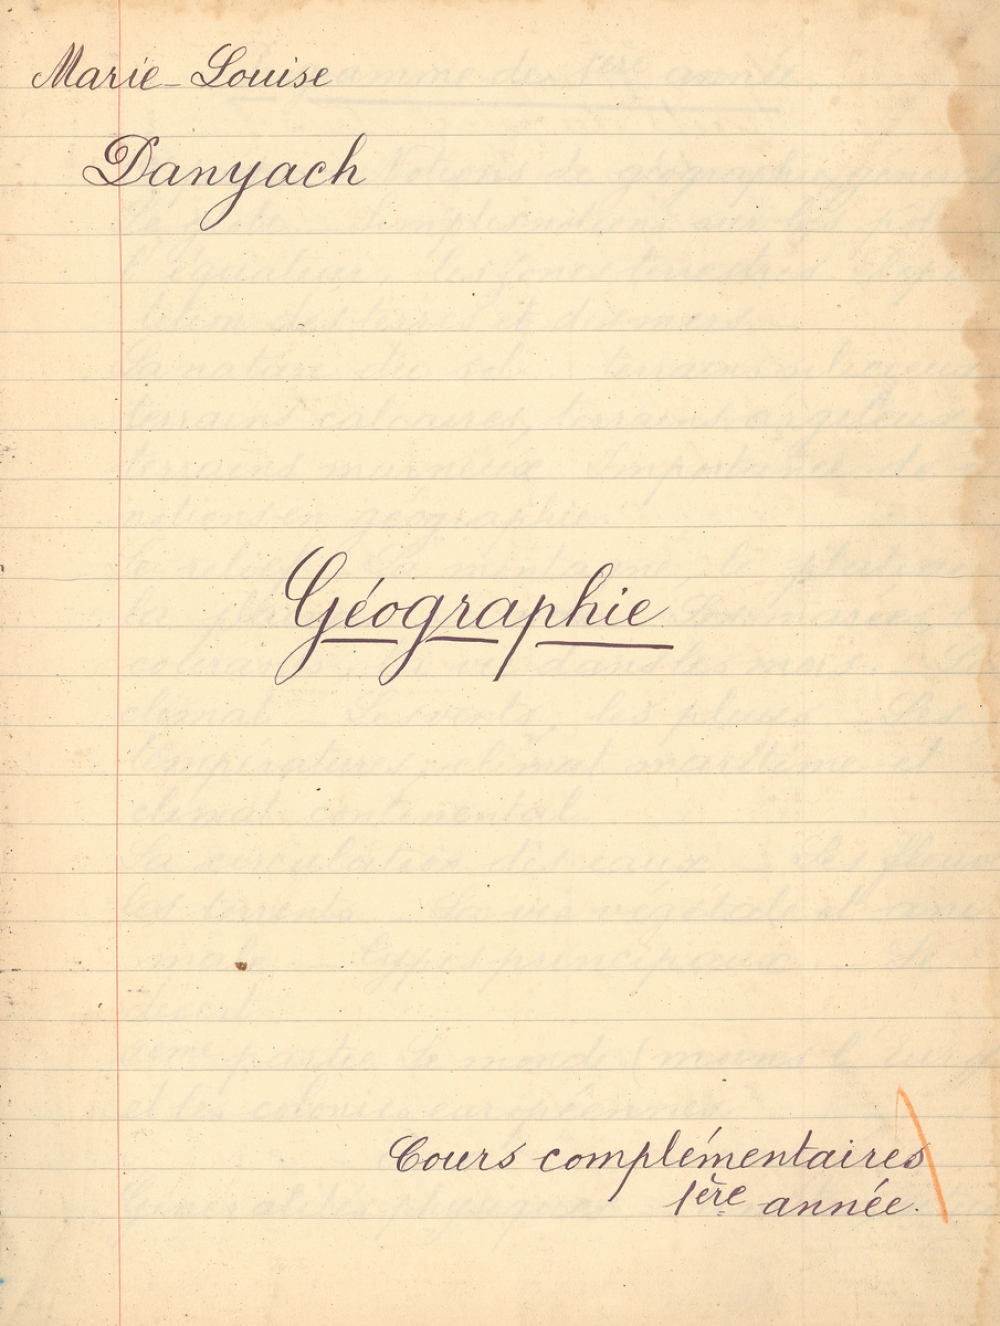 Marie-Louise
Danyach
Géographie
Cours complémentaires
1ère année.